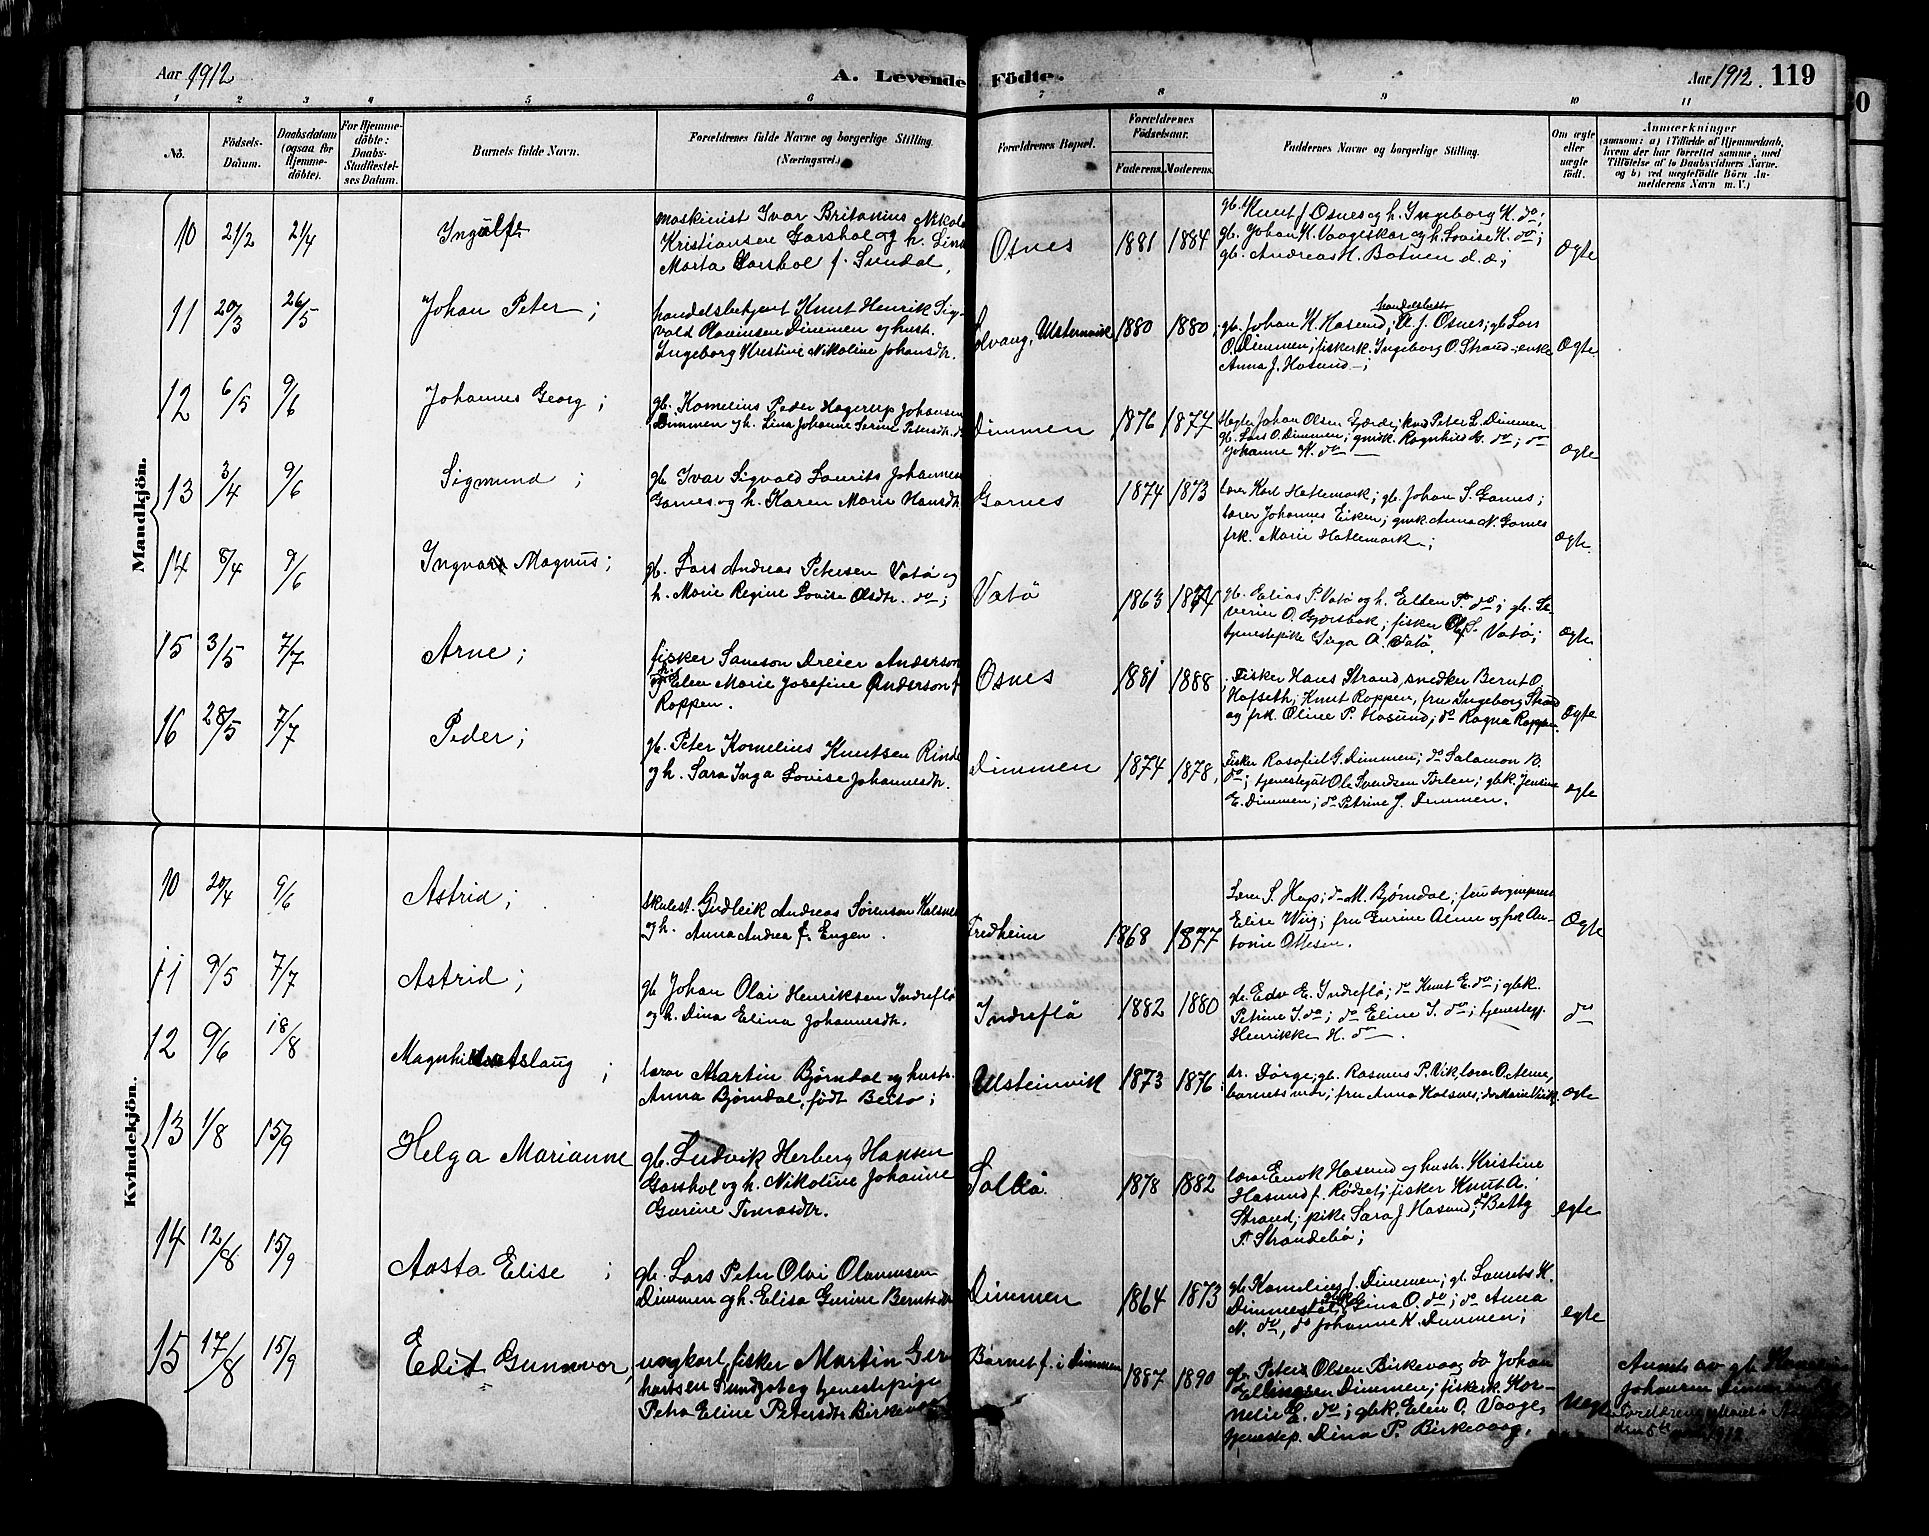 Aar 1912
A. Levende Födte.
Aar 1912. 119
1 2 3 4 5 6 7 8 9 10 11
No.
Födsels-Datum.
Daabsdatum (ogsaa for Hjemme-döbte).
For Hjemme-döbte: Daabs-Stadfæstel-ses Datum.
Barnets fulde Navn.
Forældrenes fulde Navne og borgerlige Stilling. (Næringsvei.)
Forældrenes Bopæl.
Forældrenes Födselsaar.
Faderens. Moderens.
Faddernes Navne og borgerlige Stilling.
Om ægte eller uægte födt.
Anmærkninger
(saasom: a) i Tilfælde af Hjemmedaab, hvem der har forrettet samme, med Tilföielse af to Daabsvidners Navne. og b) ved uegtefödte Börn An-melderens Navn m. V.)
Mandkjön.
10 21/2 21/4 Ingulf
maskinist Ivar Britanius Nikolai
Kristiansen Garshol og h. Lina
Marta Garshol f. Sundal,
Osnes 1881 1884
gb. Knut J. Osnes og h. Ingeborg K. do;
gb. Johan K. Vaageskar og h. Lovise K. do;
gb. Andreas H. Botnen d. æ;
Ægte
11 20/3 26/5 Johan Peter;
handelsbetjent Knut Henrik Sig-
vald Olavinsen Dimmen og hust.
Ingeborg Kristine Nikoline Johansdtr.
Solvang, Ulstenvik 1880 1880
handelsbest
gb. Johan K. Hasund; A. J. Osnes; gb. Lars
O. Dimmen; fiskerk. Ingeborg O. Strand; enke
Anna J. Hasund;
Ægte
12 6/5 9/6 Johannes Georg;
gb. Kornelius Peder Hagerup Johansen
Dimmen og h. Lina Johanne Serine Petersdtr. do
Dimmen 1876 1877
Johan Olsen Gjærde; Peter L. Dimmen
gb. Lars O. Dimmen; gmk. Ragnhild G. do; do
Johanne K. do
ægte
13 3/4 9/6 Sigmund;
gb. Ivar Sigvald Laurits Johannesen
Garnes og h. Karen Marie Hansdtr.
Garnes 1874 1873
lærer Karl Hatlemark; gb. Johan S. Garnes;
lærer Johannes Eiken; gmk. Anna N. Garnes
frk. Marie Hatlemark;
ægte.
14 8/4 9/6 Ingvar Magnus;
gb. Lars Andreas Petersen Vatö og
h. Marie Regine Lovise Olsdtr. do;
Vatö 1863 1874
gb. Elias P. Vatö og h. Ellen T. do; gb. Se-
verin O. Gjærsbak; fisker Ole S. Vatö;
tjenestepike Inga A. Vatö,
ægte
15 3/5 7/7 Arne;
fisker Samson Dreier Anderson
og Elen Marie Josefine Anderson f
Roppen.
Osnes 1881 1888
Fisker Hans Strand, snedker Bernt O.
Hofseth; Knut Roppen, fru Ingeborg Strand
og frk. Oline P. Hasund; do Ragna Roppen
Ægte
16 28/5 7/7 Peder;
gb. Peter Kornelius Knutsen Rinde
og h. Sara Inga Lovise Johannesdtr.
Dimmen 1874 1878,
Fisker Rasofiel G. Dimmen; do Salamon B.
do; tjenestegut Ole Svendsen; gbk. Jensine
E. Dimmen; do Petrine J. Dimmen.
ægte
Kvindekjön.
10 20/4 9/6 Astrid;
skolest. Gudleik Andreas Sörensen Kalsnes
og h. Anna Andrea f. Engen.
Fredheim 1868 1877
Lærer S. Hop; do M. Björndal; fru sogneprest
Elise Wiig; fru Gurine Alme og frk An-
tonie Ottesen.
Ægte
11 9/5 7/7 Astrid;
gb Johan Olai Henriksen Indreflö
og h. Dina Elina Johannesdtr.
Indreflö 1882 1880
gb. Edv E. Indreflö; do Knut E. do; gbk.
Petrine I. do; do Eline I. do; tjenestepg.
Henrikke H. do.
do
12 9/6 18/8 Magnhild Aslaug;
lærer Martin Björndal og hustr.
Anna Björndal, födt Beito;
Ulsteinvik 1873 1876;
dr. Dörge; gb. Rasmus P. Vik, lærer O. Alme,
barnets mor; fru Anna Kalsnes; do Marie Virik,
ægte
13 1/8 15/9 Helga Marianne
gb. Ludvik Herberg Hansen
Garshol og h. Nikoline Johanne
Gurine Tomasdtr.
1878 1882
lærer Enok Hasund og hustr. Kristine
Hasund f. Rödset; fisker Knut A.
Strand; pike Sara J Hasund; do Betty
T. Strandebö;
egte
14 12/8 15/9 Aasta Elise;
gb. Lars Peter Olai Olavinsen
Dimmen og h. Elisa Gurine Berntsdtr
Dimmen 1864 1873
gb. Kornelius J. Dimmen; gb. Laurits K.
Gina O. do; do Anna
N. do, do Johanne K. Dimmen;
egte
15 17/8 15/9 Edit Gunnvor,
ungkarl, fisker Martin Ger-
hartsen Sundgot og tjenestepige
Petra Eline Petersdtr. Birkevaag
Barnet f. i Dimmen 1887 1890
gb. Peter Olsen Birkevaag do Johan
Ellingsen Dimmen; fiskerk. Kor-
nelie E. do; gbk. Elen O. Vaage,
tjenestep. Dina P. Birkevaag.
Uegte
Anmeldt av gb.
Johansen Dimmen